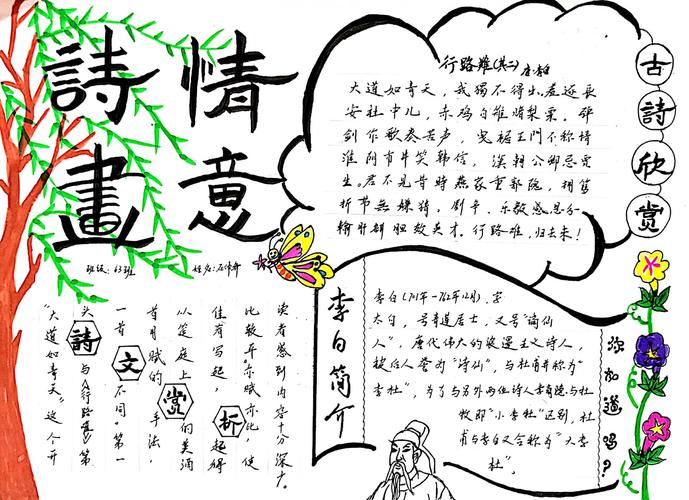 詩情
畫意
班级:63班 姓名:石
行路难(其二) 唐 李白
大道如青天,我独不得出。羞逐长
安社中儿,赤鸡白雉赌梨栗。弹
剑作歌奏苦声,曳裾王门不称情
淮阴市井笑韩信,汉朝公卿忌贾
生。君不见昔时燕家重郭隗,拥篲
折节无嫌猜。剧辛、乐毅感恩分
输肝剖胆效英才。行路难,归去来!
古詩欣赏
李白简介
李白(701年-762年12月),字
太白,号青莲居士,又号"谪仙
人",唐代伟大的浪漫主义诗人,
被后人誉为"诗仙",与杜甫并称为"
李杜",为了与另外两位诗人李商隐与杜
牧即"小李杜"区别,杜
甫与李白又合称为"大李
杜"。
你知道吗?
詩文赏析
"大道如青天"这个开
头与《行路难》第
一首不同。第一
首用赋的手法,
从筵席上的美酒
佳肴写起,起得
比较平。亦赋亦比,使
读者感到内容十分深广。